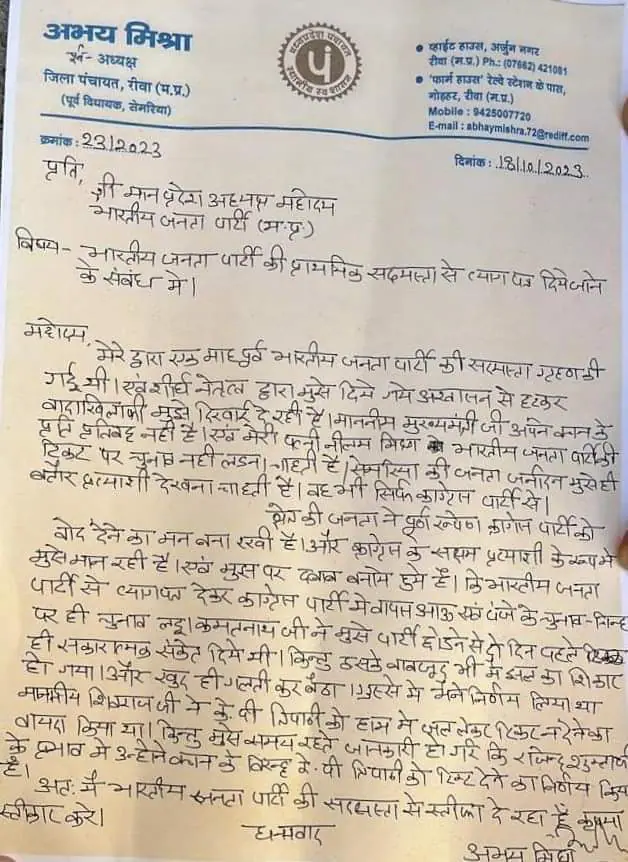 अभय मिश्रा
पूर्व- अध्यक्ष
जिला पंचायत, रीवा (म.प्र.)
(पूर्व विधायक, सेमरिया)
मध्यप्रदेश पंचायत
पं
स्थानीय स्व शासन
• व्हाईट हाउस, अर्जुन नगर
रीवा (म.प्र.) Ph.: (07662) 421081
• 'फार्म हाउस' रेल्वे स्टेशन के पास,
गोड़हर, रीवा (म.प्र.)
Mobile : 9425007720
E-mail : abhaymishra.72@rediff.com
क्रमांक : 23/2023
दिनांक : 18/10/2023
प्रति,
श्री मान प्रदेश अध्यक्ष महोदय
भारतीय जनता पार्टी (म.प्र.)
विषय - भारतीय जनता पार्टी की प्राथमिक सदस्यता से त्याग पत्र दिये जाने
के संबंध में।
महोदय,
मेरे द्वारा एक माह पूर्व भारतीय जनता पार्टी की सदस्यता ग्रहण की
गई थी। एवं शीर्ष नेतृत्व द्वारा मुझे दिये गये आश्वासन से हटकर
वादाखिलाफी मुझे दिखाई दे रही है। माननीय मुख्यमंत्री जी अपने कथन के
प्रति प्रतिबद्ध नहीं है। एवं मेरी पत्नी नीलम मिश्रा भारतीय जनता पार्टी की
टिकट पर चुनाव नही लडना चाहती है। सेमरिया की जनता जनार्दन मुझे ही
बतौर प्रत्याशी देखना चाहती है। वह भी सिर्फ कांग्रेस पार्टी से।
क्षेत्र की जनता ने पूर्ण रूपेण कांग्रेस पार्टी को
वोट देने का मन बना रखी है। और कांग्रेस के सक्षम प्रत्याशी के रूप में
मुझे मान रही है। एवं मुझ पर दबाव बनाये हुये है। कि भारतीय जनता
पार्टी से त्यागपत्र देकर कांग्रेस पार्टी में वापस आऊ एवं पंजे के चुनाव-चिन्ह
पर ही चुनाव लडू। कमलनाथ जी ने मुझे पार्टी छोडने से दो दिन पहले
ही सकारात्मक संकेत दिये थे। किन्तु उसके बावजूद भी मैं छल का शिकार
हो गया। और खुद ही गलती कर बैठा। गुस्से में मैने निर्णय लिया था
माननीय शिवराज जी ने के. पी त्रिपाठी को हाथ में जल लेकर टिकट न देने का
वायदा किया था। किन्तु मुझे समय रहते जानकारी हो गई कि राजेन्द्र शुक्ला
के प्रभाव में उन्होने कथन के विरुद्ध के. पी त्रिपाठी को टिकट देने का निर्णय किया
है।
अतः मैं भारतीय जनता पार्टी की सदस्यता से स्तीफा दे रहा हूँ कृपया
स्वीकार करे।
धन्यवाद
अभय मिश्रा